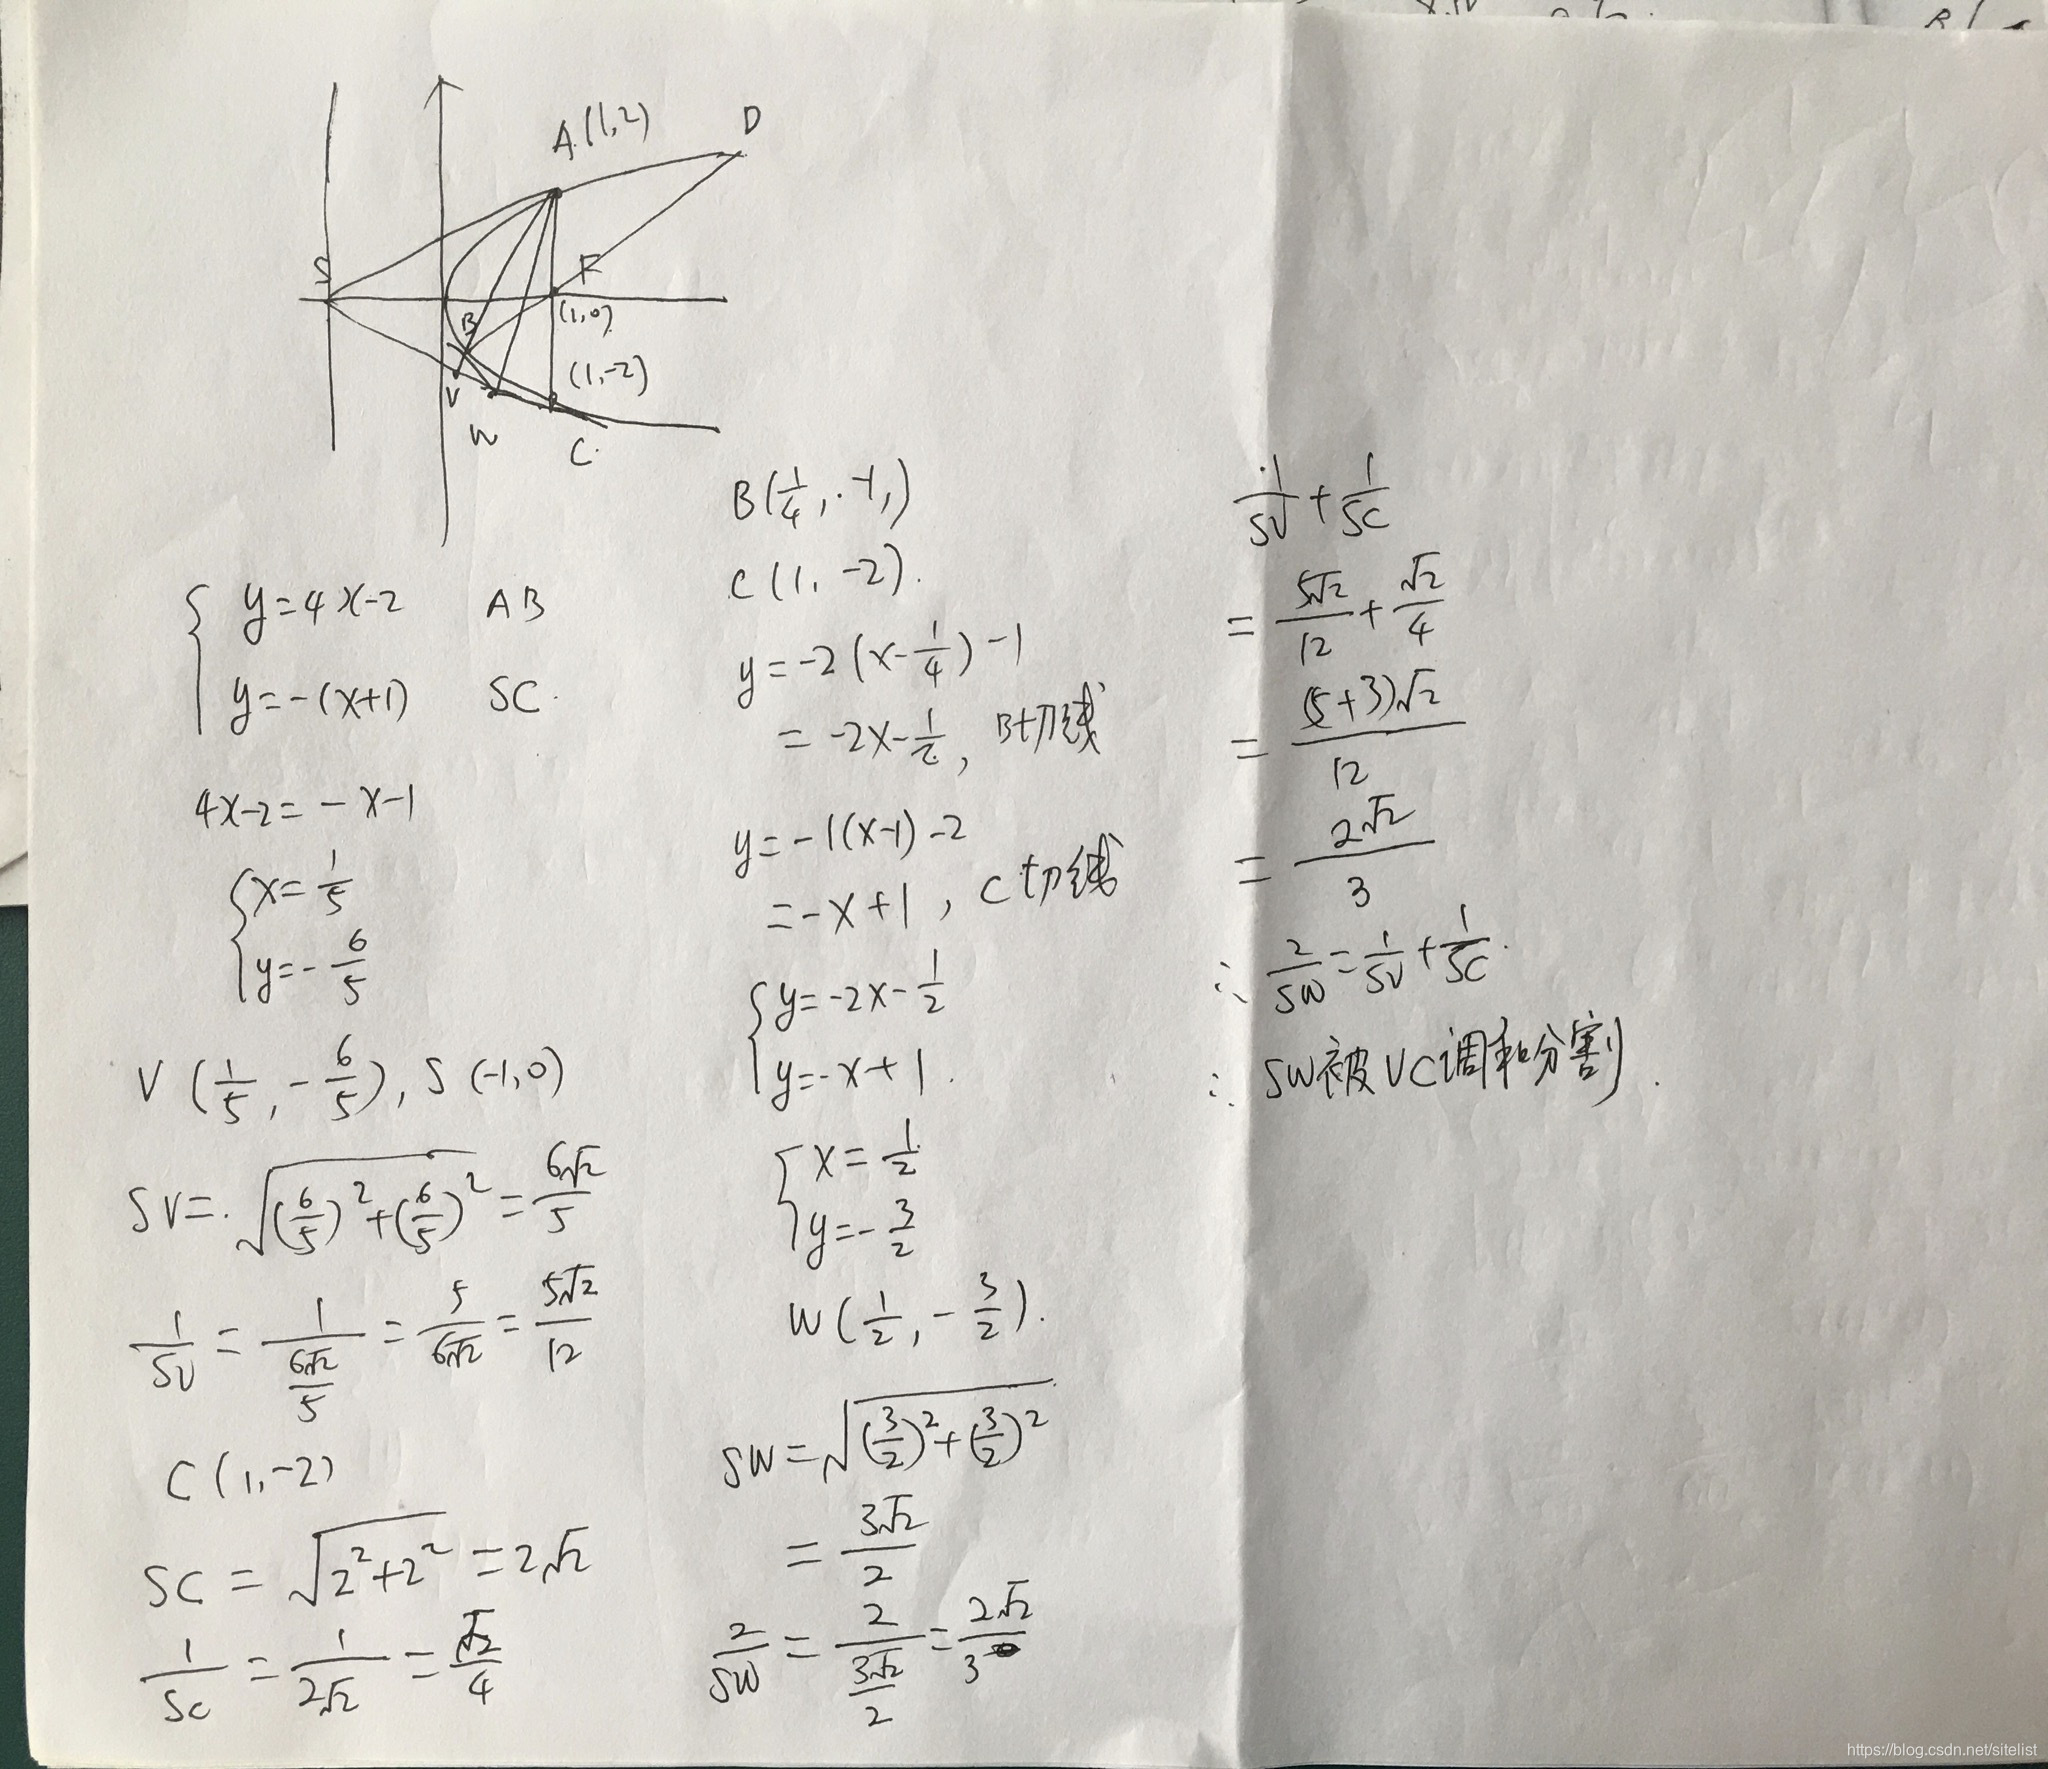 A.(1,2)
D
S
F
B
(1,0)
(1,-2)
V
W
C.
y=4x-2 AB
y=-(x+1) SC.
4x-2=-x-1
x=1/5
y=-6/5
V(1/5,-6/5), S(-1,0)
SV=√((6/5)²+(6/5)²)=6√2/5
1/SV=1/(6√2/5)=5/(6√2)=5√2/12
C(1,-2)
SC=√(2²+2²)=2√2
1/SC=1/(2√2)=√2/4
B(1/4,-1,)
C(1,-2).
y=-2(x-1/4)-1
=-2x-1/2, B切线
y=-1(x-1)-2
=-x+1, C切线
y=-2x-1/2
y=-x+1.
x=1/2
y=-3/2
W(1/2,-3/2).
SW=√((3/2)²+(3/2)²)
=3√2/2
2/SW=2/(3√2/2)=2√2/3
1/SV+1/SC
=5√2/12+√2/4
=(5+3)√2/12
=2√2/3
∴2/SW=1/SV+1/SC.
∴SW被VC调和分割.
https://blog.csdn.net/sitelist